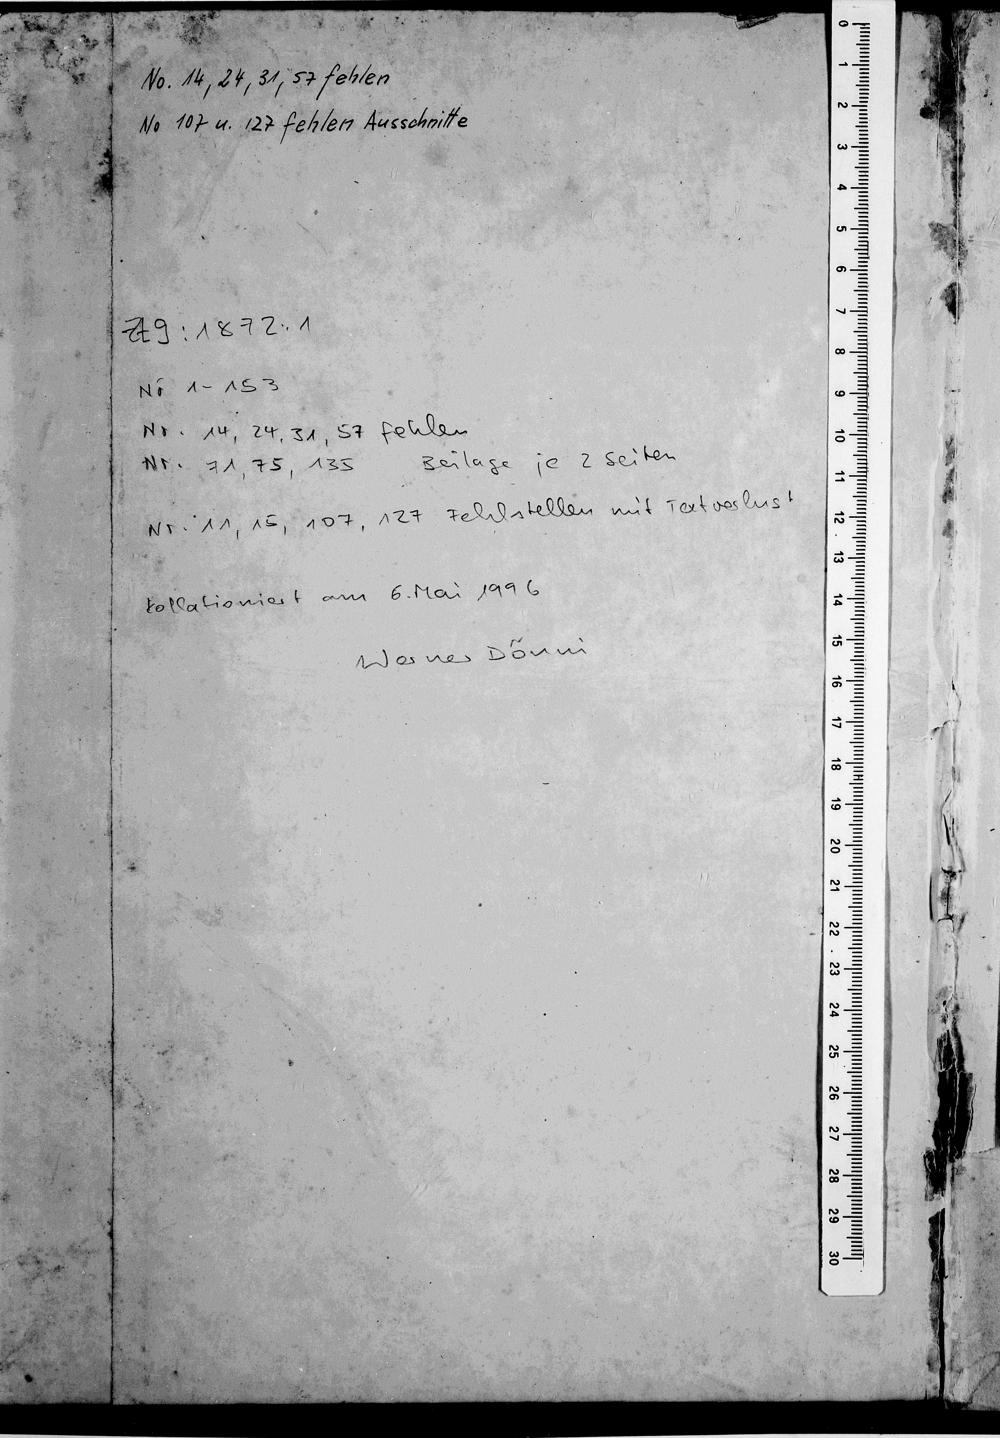 No. 14, 24, 31, 57 fehlen
No 107 u. 127 fehlen Ausschnitte
Ztg: 1872.1
Nr 1-153
Nr. 14, 24, 31, 57 fehlen
Nr. 71, 75, 135 Beilage je 2 Seiten
Nr. 11, 15, 107, 127 Fehlstellen mit Textverlust
Kollationiert am 6. Mai 1996
Werner Dönni
0
1
2
3
4
5
6
7
8
9
10
11
12
13
14
15
16
17
18
19
20
21
22
23
24
25
26
27
28
29
30